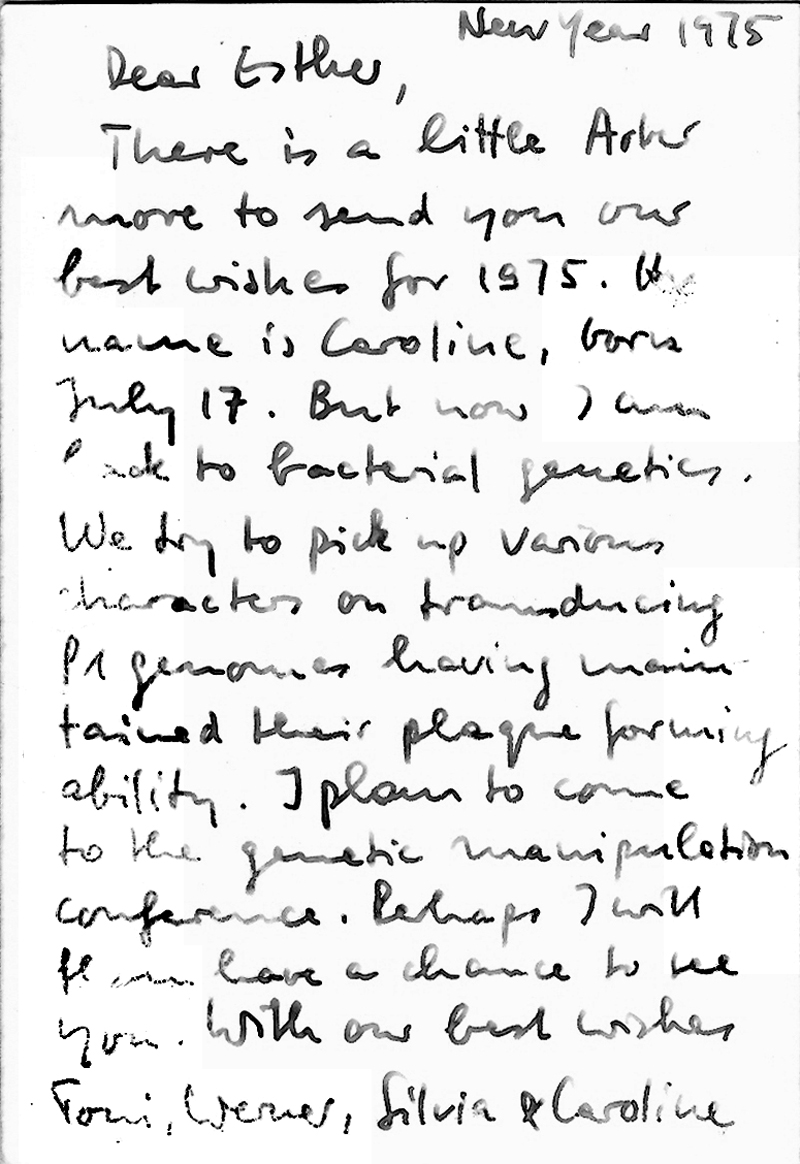 New Year 1975
Dear Esther,
There is a little Arber
more to send you our
best wishes for 1975.
name is Caroline, born
July 17. But now I am
back to bacterial genetics.
We try to pick up various
characters on transducing
P1 genomes having main
tained their plaque forming
ability. I plan to come
to the genetic manipulation
conference. Perhaps I will
then have a chance to see
you. With our best wishes
Toni, Werner, Silvia & Caroline